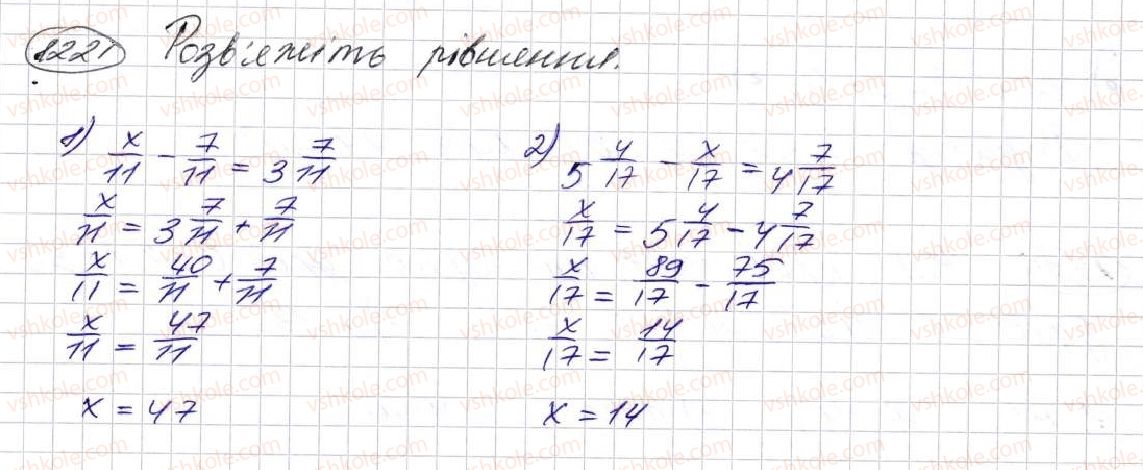 1221 Розв'яжіть рівняння.
1) x/11 - 7/11 = 3 7/11
x/11 = 3 7/11 + 7/11
x/11 = 40/11 + 7/11
x/11 = 47/11
x = 47
2) 5 4/17 - x/17 = 4 7/17
x/17 = 5 4/17 - 4 7/17
x/17 = 89/17 - 75/17
x/17 = 14/17
x = 14
vshkole.com